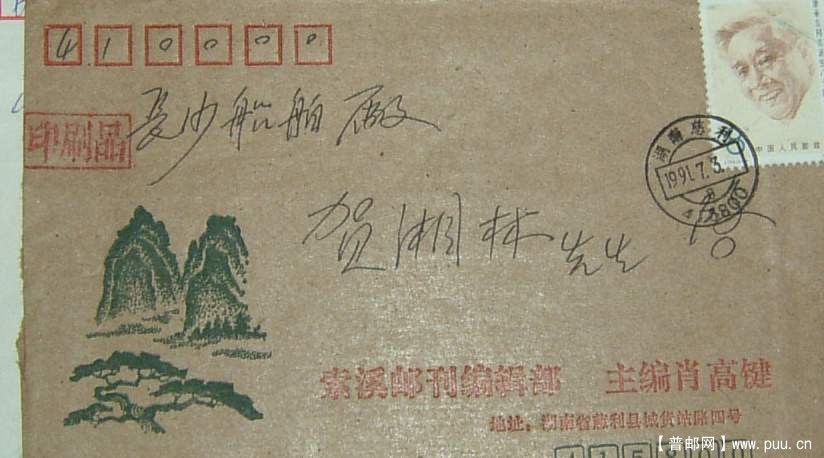 410000
长沙船舶厰
印刷品
湖南慈利
1991.7.3.
中国人民邮政
贺湘林先生
索溪邮刊编辑部 主编肖高键
地址：湖南省慈利县城货站路四号
【普邮网】www.puu.cn